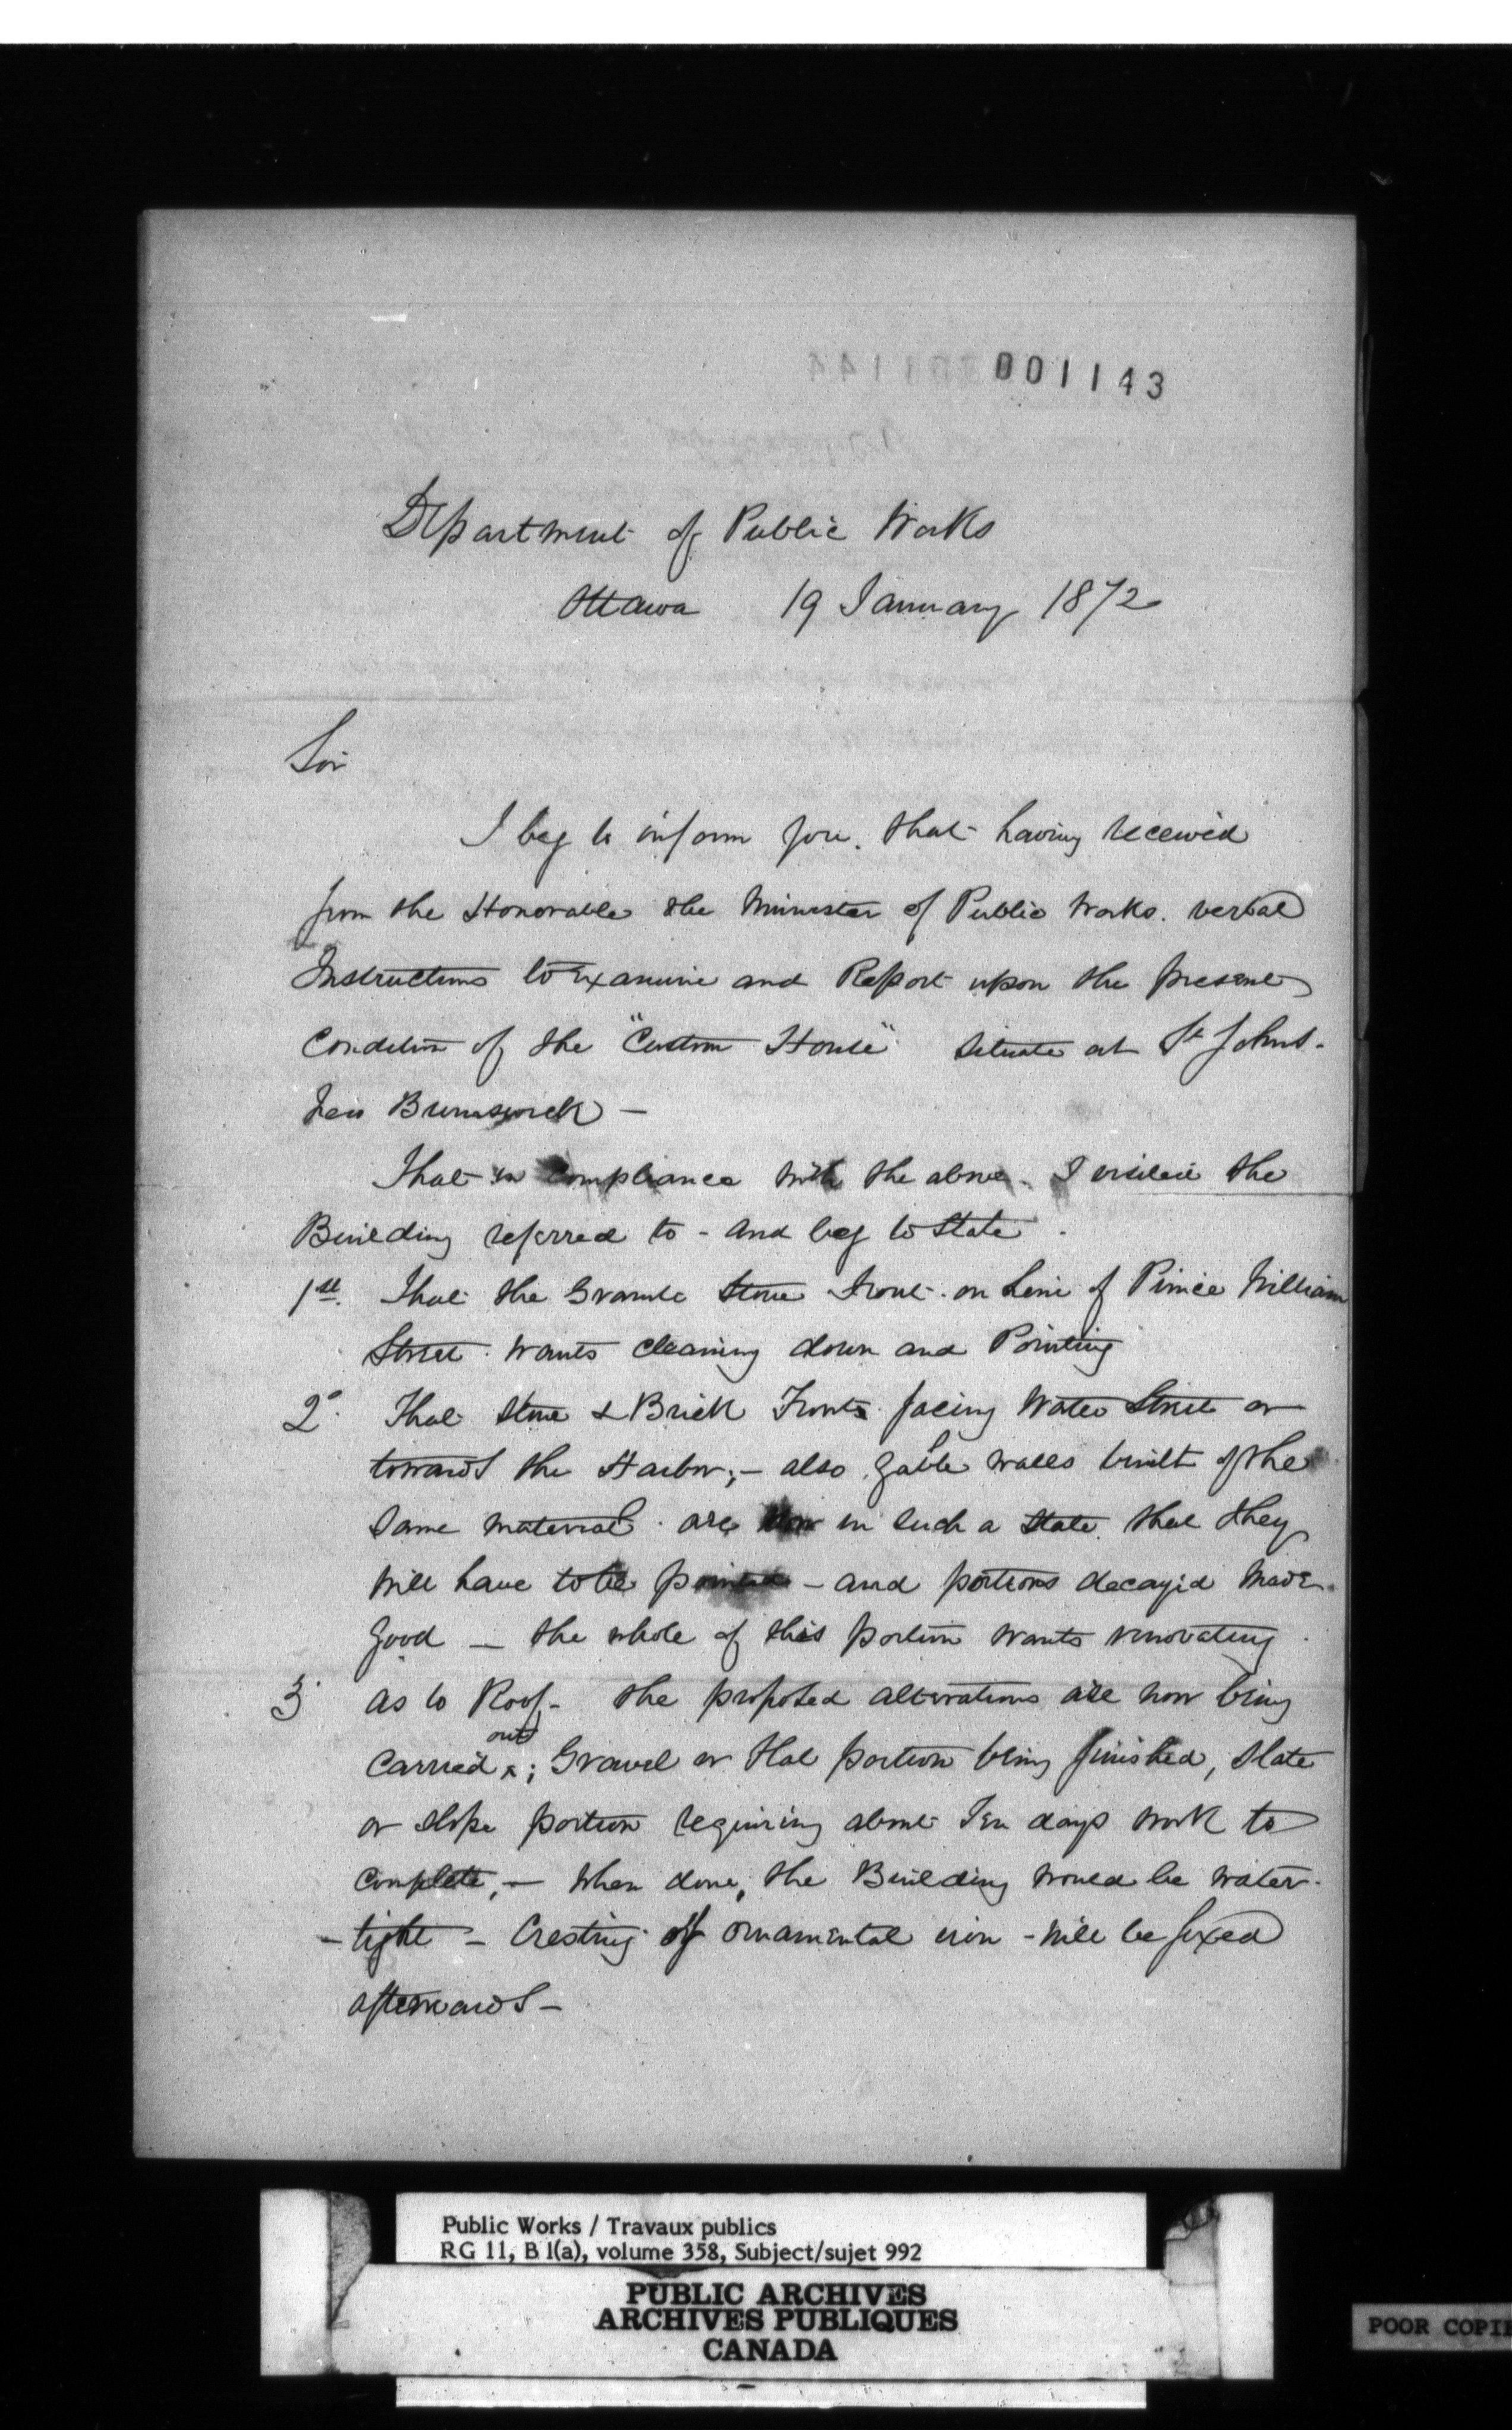 001143
Department of Public Works
Ottawa 19 January 1872
Sir
I beg to inform you. that having received
from the Honorable the Minister of Public Works. verbal
Instructions to Examine and Report upon the present
Condition of the "Custom House" situate at St Johns.
New Brunswick —
That in compliance with the above. I visited the
Building referred to - and beg to state.
1st. That the Granite Stone Front. on Line of Prince William
Street. wants cleaning down and Pointing
2° That Stone & Brick Fronts facing Water Street or
towards the Harbor; - also Gable walls built of the
same material. are now in such a state. that they
will have to be pointed - and portions decayed made
good — the whole of this portion wants renovating.
3. as to Roof - the proposed alterations are now being
carried out; Gravel or flat portion being finished, slate
or slope portion requiring about Ten days work to
complete, — when done, the Building would be water-
-tight - Cresting of ornamental iron - will be fixed
afterwards -
Public Works / Travaux publics
RG 11, B 1(a), volume 358, Subject/sujet 992
PUBLIC ARCHIVES
ARCHIVES PUBLIQUES
CANADA
POOR COPIE